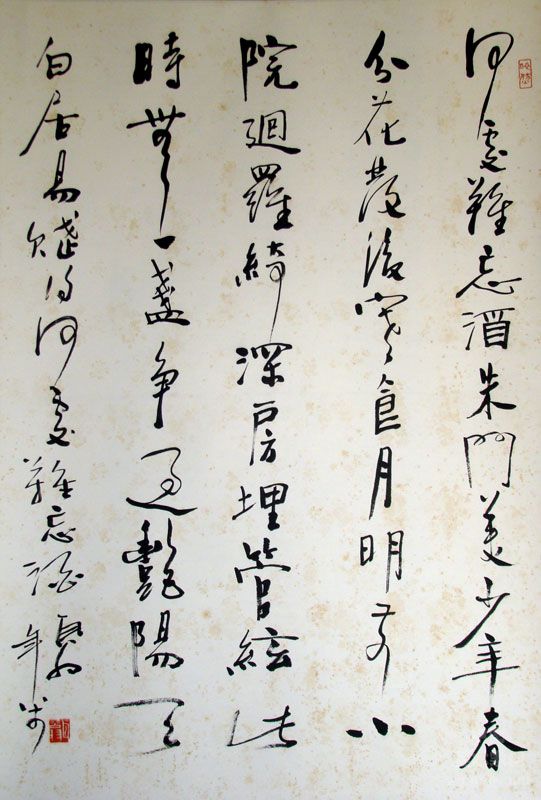 何處難忘酒朱門美少年春
分花發後寒食月明前小
院迴羅綺深房理管絃此
時無一盞爭過艷陽天
白居易何處難忘酒